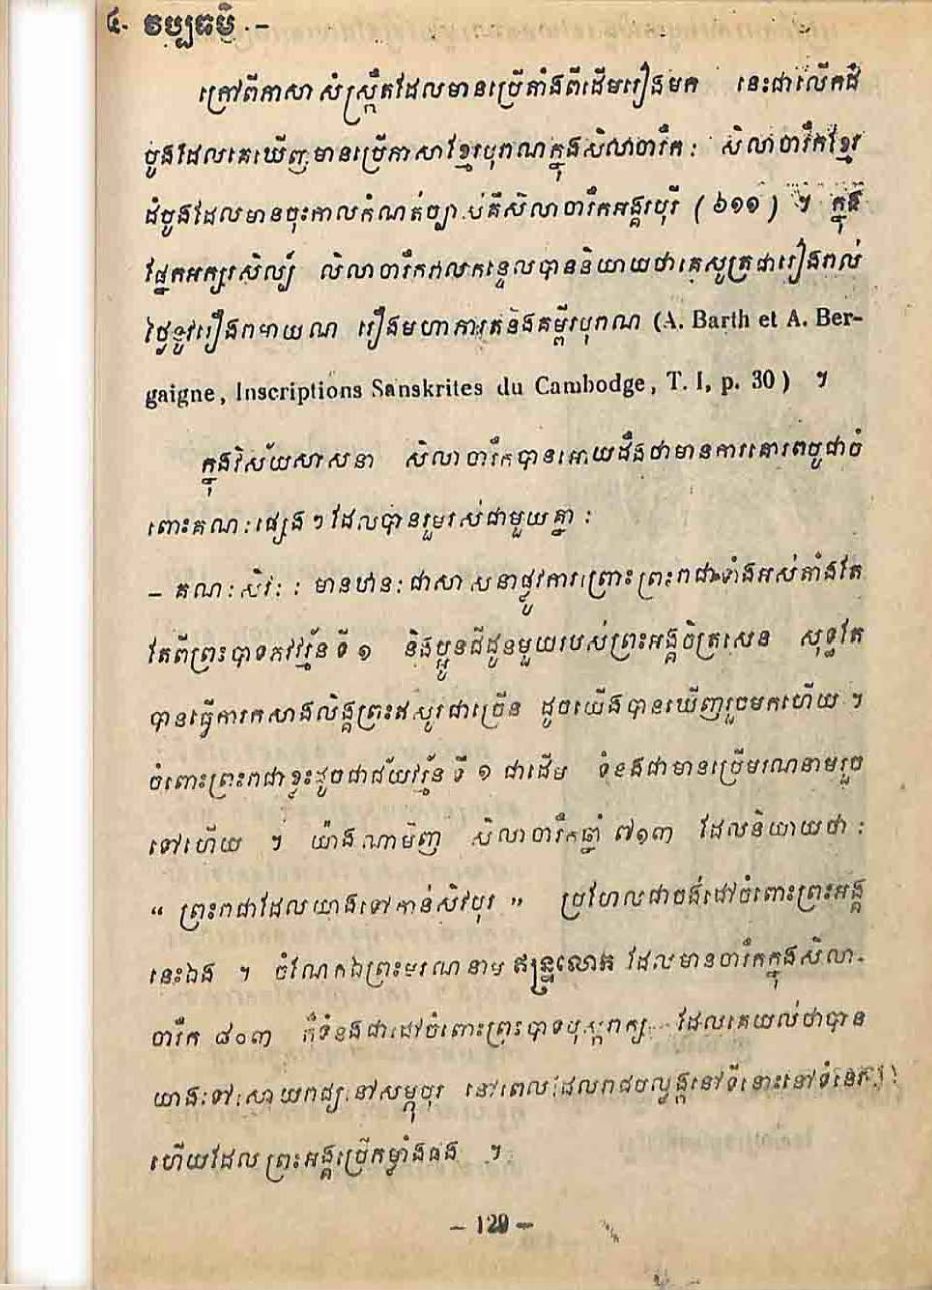 ៤. វប្បធម៌ . –
ក្រៅពីភាសា សំស្រ្កឹតដែលមានប្រើតាំងពីដើមរៀងមក នេះជាលើកដំ
បូងដែលគេឃើញមានប្រើភាសាខ្មែរបុរាណក្នុងសិលាចារឹក : សិលាចារឹកខ្មែរ
ដំបូងដែលមានចុះកាលកំណត់ច្បាប់គឺសិលាចារឹកអង្គរបុរី ( ៦១១ ) ។ ក្នុង
ផ្នែកអក្សរសិល្ប៍ លិលាចារឹកវាលកន្ទេលបាននិយាយថាគេសូត្រជារៀងរាល់
ថ្ងៃនូវរឿងរាមាយណ រឿងមហាភារតនិងគម្ពីរបុរាណ (A. Barth et A. Ber-
gaigne, Inscriptions Sanskrites du Cambodge, T. I, p. 30 ) ។
ក្នុងវិស័យសាសនា សិលាចារឹកបានអោយដឹងថាមានការគោរពបូជាចំ
ពោះគណ:ផ្សេងៗដែលបានរួមរស់ជាមួយគ្នា :
– គណ:សិវ: : មានឋាន:ជាសាសនាផ្លូវការព្រោះព្រះរាជាទាំងអស់តាំងតែ
តែពីព្រះបាទភវវរ្ម័នទី ១ និងប្អូនជីដូនមួយរបស់ព្រះអង្គចិត្រសេន សុទ្ធតែ
បានធ្វើការកសាងលិង្គព្រះឥសូរជាច្រើន ដូចយើងបានឃើញរួចមកហើយ ។
ចំពោះព្រះរាជាខ្លះដូចជាជ័យវរ្ម័នទី ១ ជាដើម ទំនងជាមានប្រើមរណនាមរួច
ទៅហើយ ។ យ៉ាងណាមិញ សិលាចារឹកឆ្នាំ ៧១៣ ដែលនិយាយថា :
“ ព្រះរាជាដែលយាងទៅកាន់សិវបុរ ” ប្រហែលជាចង់ដៅចំពោះព្រះអង្គ
នេះឯង ។ ចំណែកឯព្រះមរណនាម ឥន្ទ្រលោត ដែលមានចារឹកក្នុងសិលា-
ចារឹក ៨០៣ ក៏ទំនងជាដៅចំពោះព្រះបាទបុស្ករាក្ស ដែលគេយល់ថាបាន
យាងទៅសោយរាជ្យនៅសម្ភុបុរ នៅពេលដែលរាជបល្ល័ង្កនៅទីនោះនៅទំនេរ
ហើយដែលព្រះអង្គប្រើកម្លាំងផង ។
– 129 –